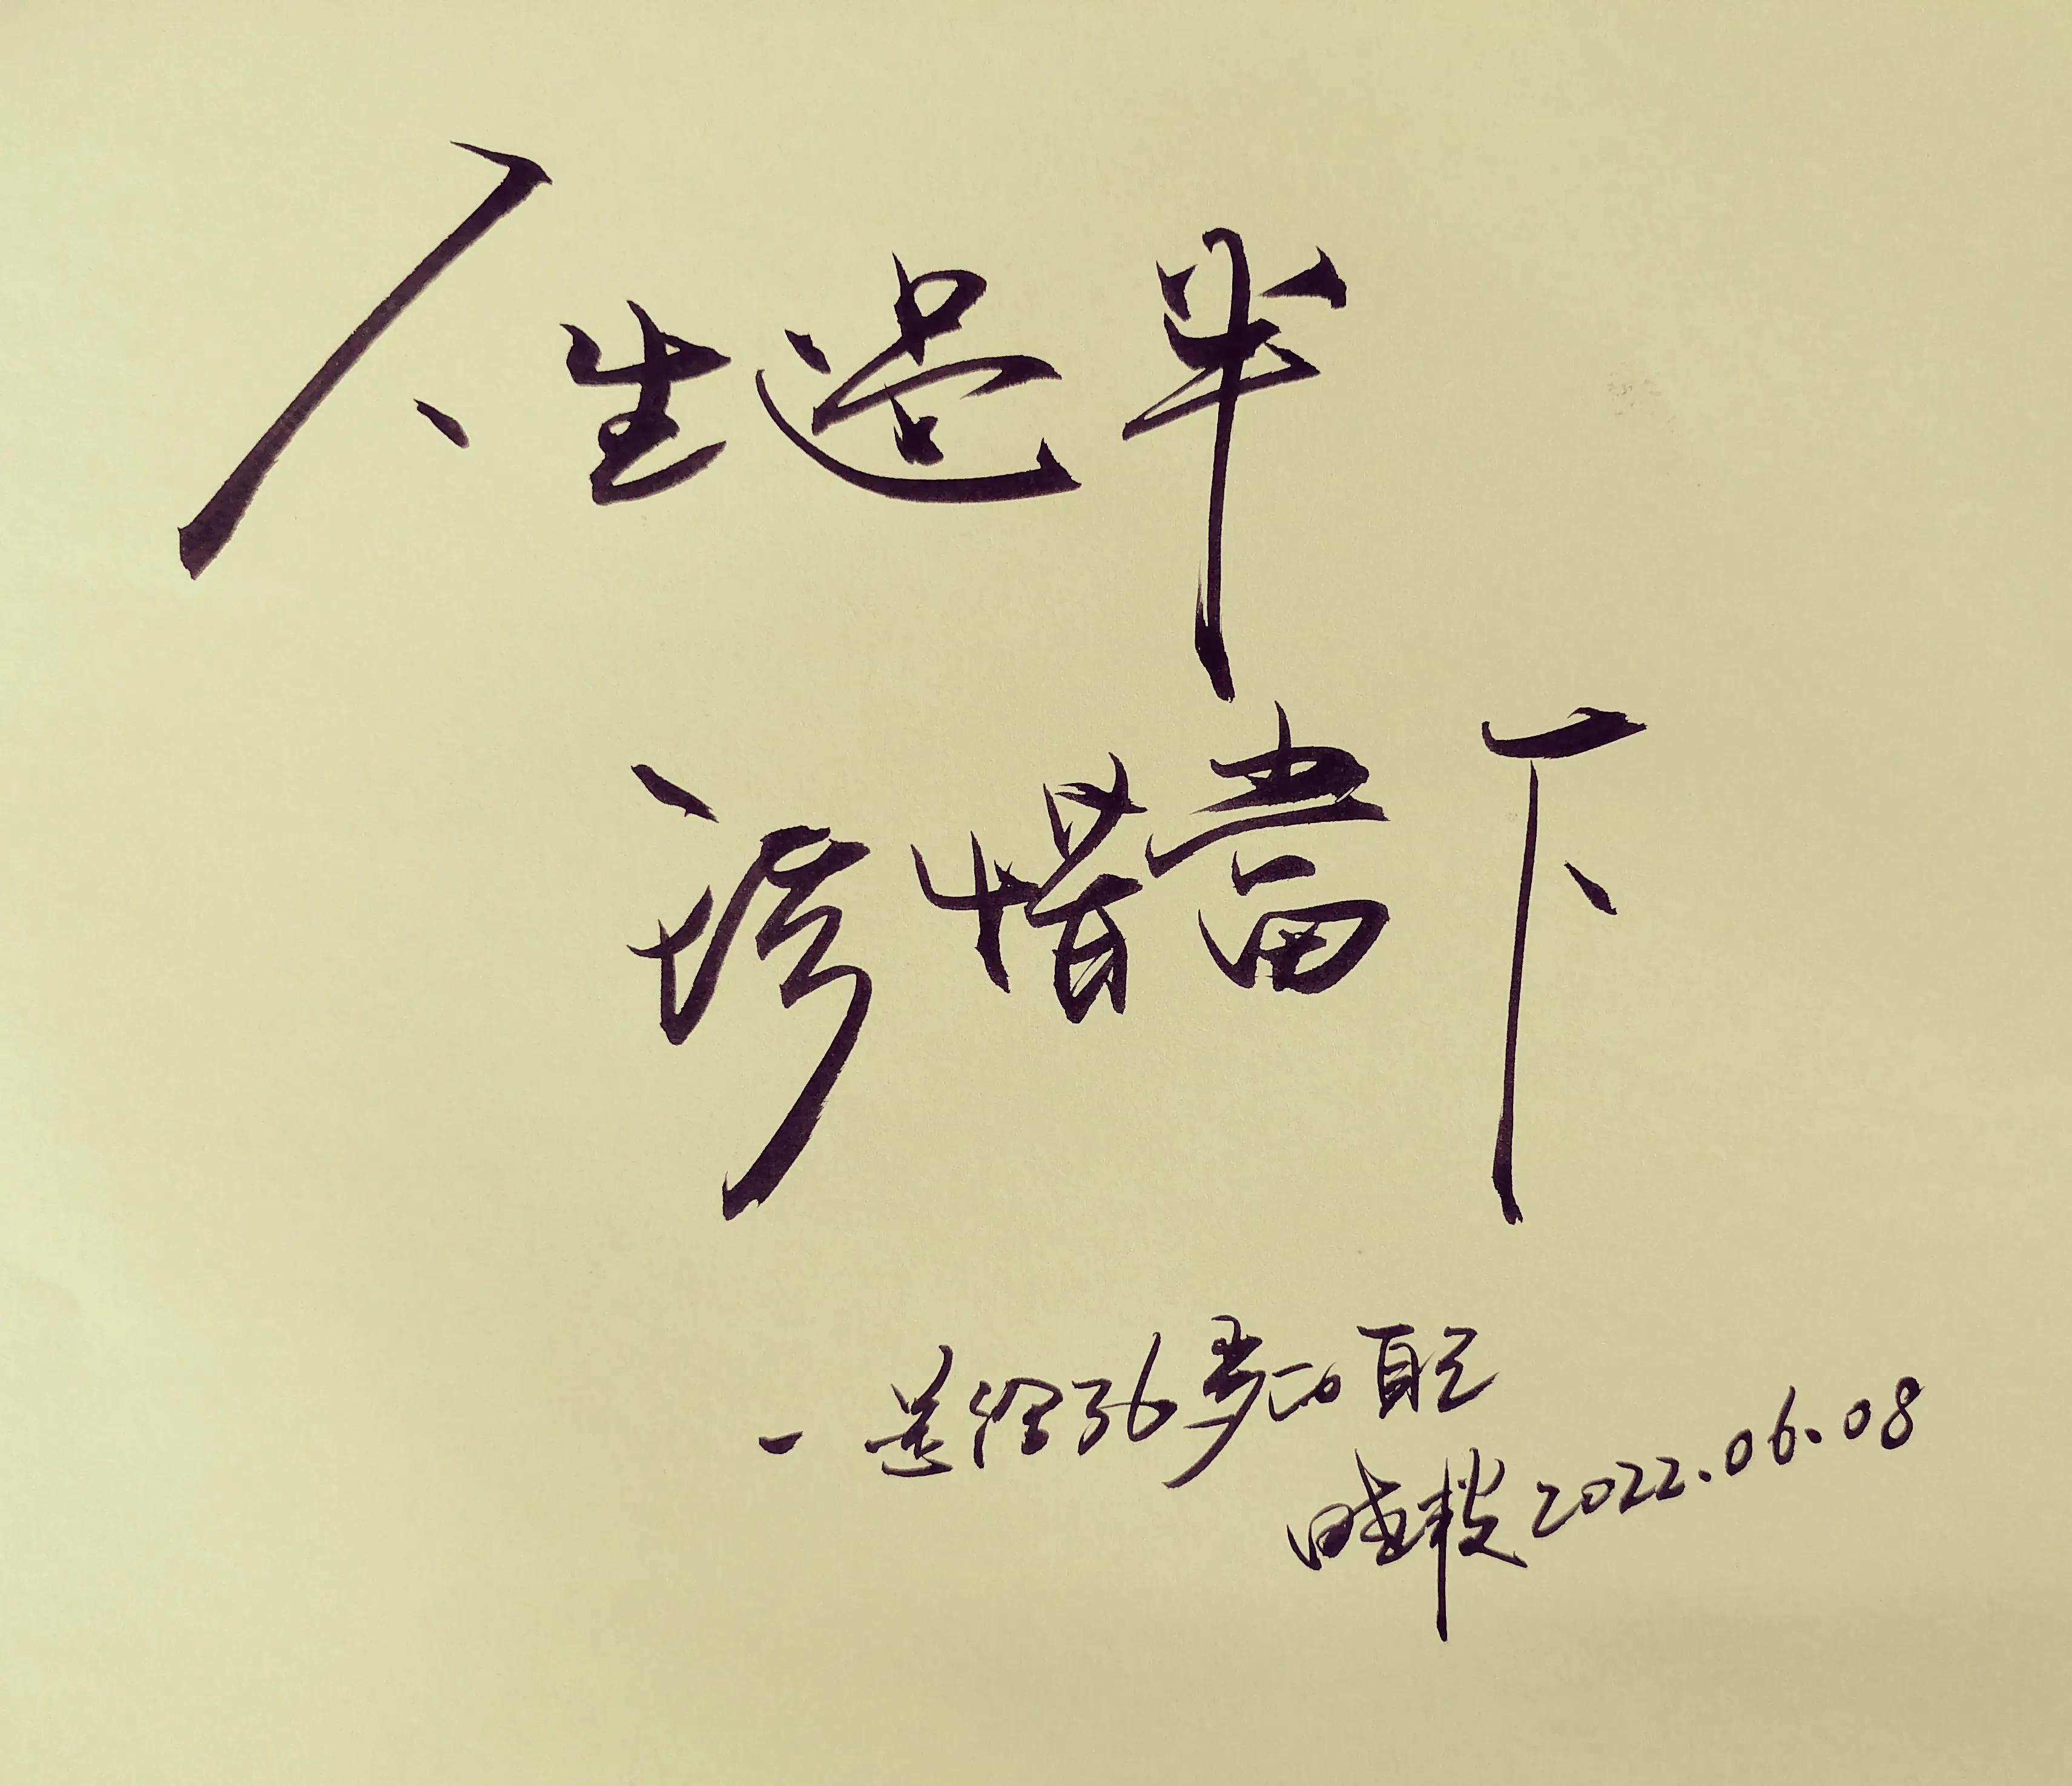 人生過半
珍惜當下
—送给36岁的自己
2022.06.08